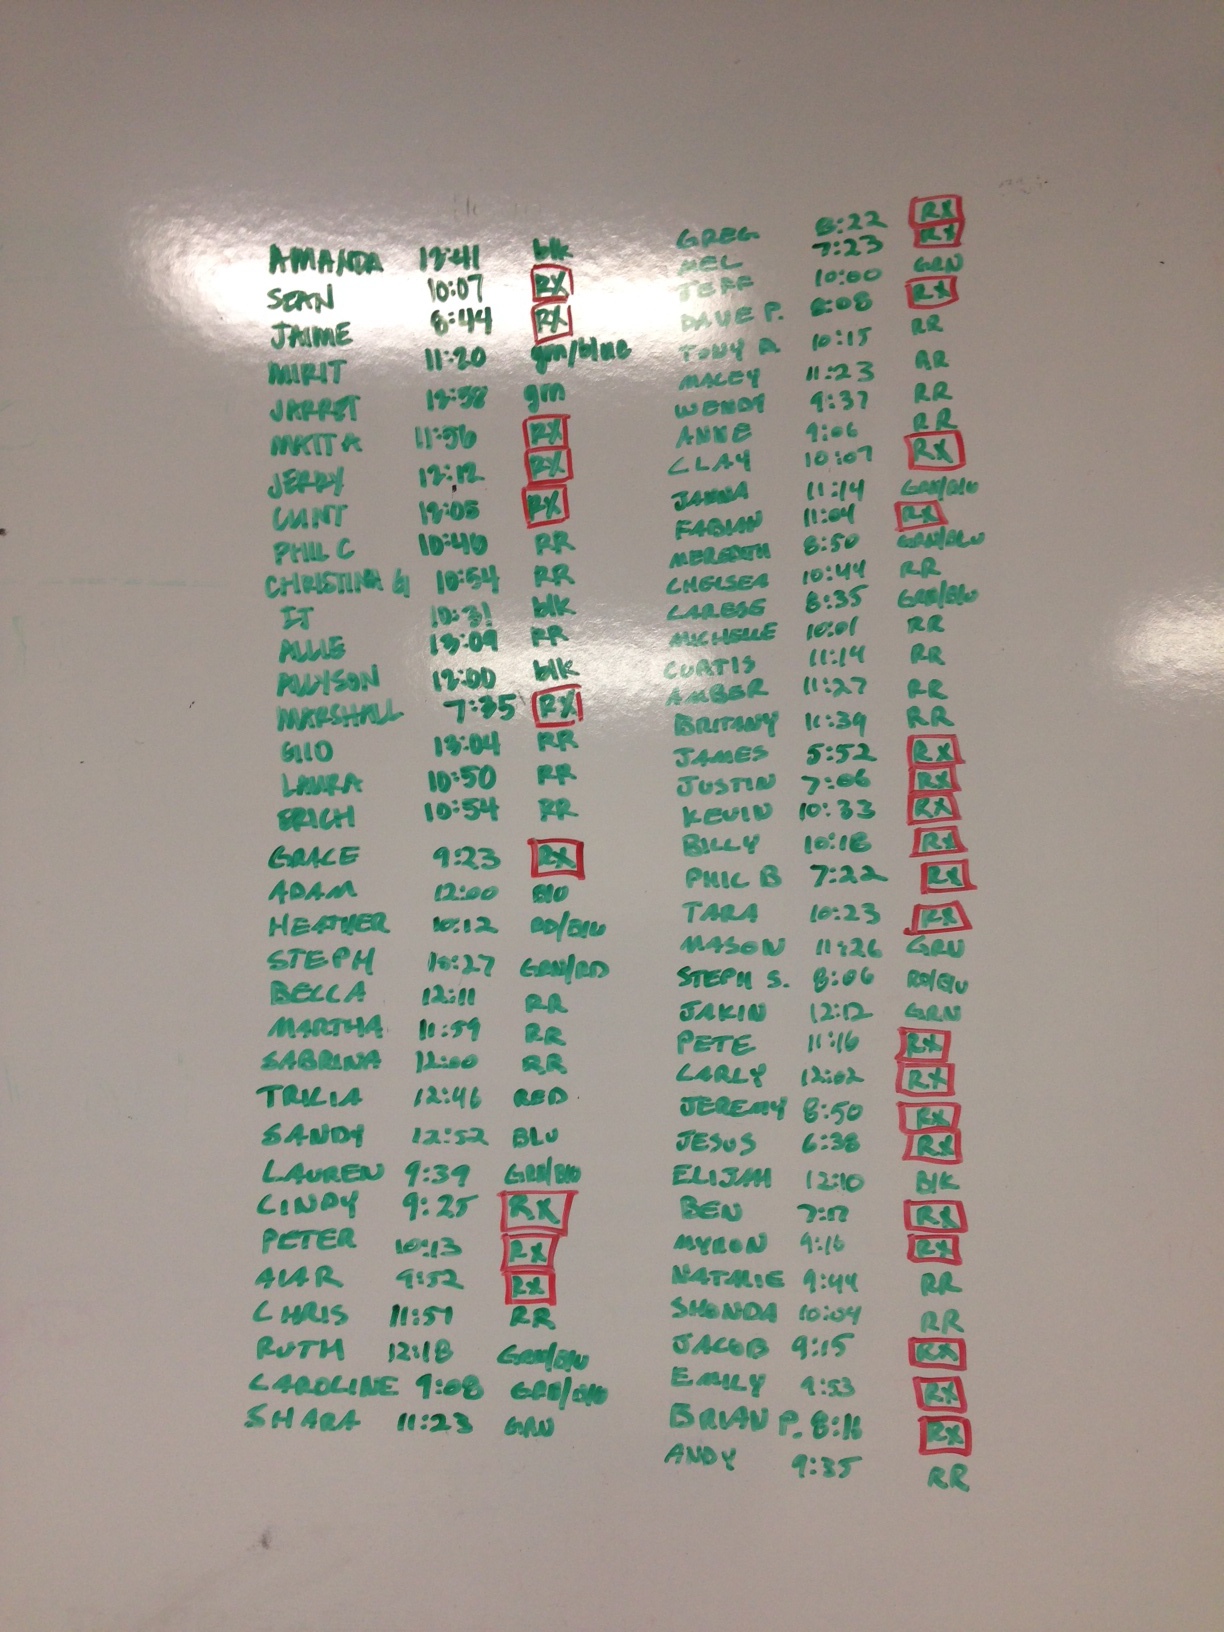 AMANDA 12:41 blk
SEAN 10:07 RX
JAIME 8:44 RX
MIRIT 11:20 grn/blue
JARRET 12:58 grn
MATT A 11:56 RX
JERRY 12:12 RX
12:05 RX
PHIL C 10:46 RR
CHRISTINA G 10:54 RR
10:31 blk
ALLIE 13:09 RR
ALLYSON 12:00 blk
MARSHALL 7:35 RX
GIIO 13:04 RR
LAURA 10:50 RR
ERICH 10:54 RR
GRACE 9:23 RX
ADAM 12:00 BLU
HEATHER 10:12 RD/BLU
STEPH 10:27 GRN/RD
BECCA 12:11 RR
MARTHA 11:59 RR
SABRINA 12:00 RR
TRICIA 12:46 RED
SANDY 12:52 BLU
LAUREN 9:39 GRN/BLU
CINDY 9:25 RX
PETER 10:13 RX
9:52 RX
CHRIS 11:57 RR
RUTH 12:18 GRN/BLU
CAROLINE 9:08 GRN/BLU
SHARA 11:23 GRN
GREG 8:22 RX
MEL 7:23 RX
JEFF 10:00 GRN
DAVE P. 8:08 RX
TONY A. 10:15 RR
MACEY 11:23 RR
WENDY 9:37 RR
ANNE 9:06 RR
CLAY 10:07 RX
JANNA 11:14 GRN/BLU
FABIAN 11:04 RX
MEREDITH 8:50 GRN/BLU
CHELSEA 10:44 RR
CAREGE 8:35 GRN/BLU
MICHELLE 10:01 RR
CURTIS 11:14 RR
AMBER 11:27 RR
BRITANY 11:39 RR
JAMES 5:52 RX
JUSTIN 7:06 RX
KEVIN 10:33 RX
BILLY 10:18 RX
PHIL B 7:22 RX
TARA 10:23 RX
MASON 11:26 GRN
STEPH S. 8:06 RD/BLU
JAKIN 12:12 GRN
PETE 11:16 RX
CARLY 12:02 RX
JEREMY 8:50 RX
JESUS 6:38 RX
ELIJAH 12:10 BlK
BEN 7:17 RX
MYRON 9:16 RX
NATALIE 9:44 RR
SHONDA 10:04 RR
JACOB 9:15 RX
EMILY 9:53 RX
BRIAN P. 8:16 RX
ANDY 9:35 RR